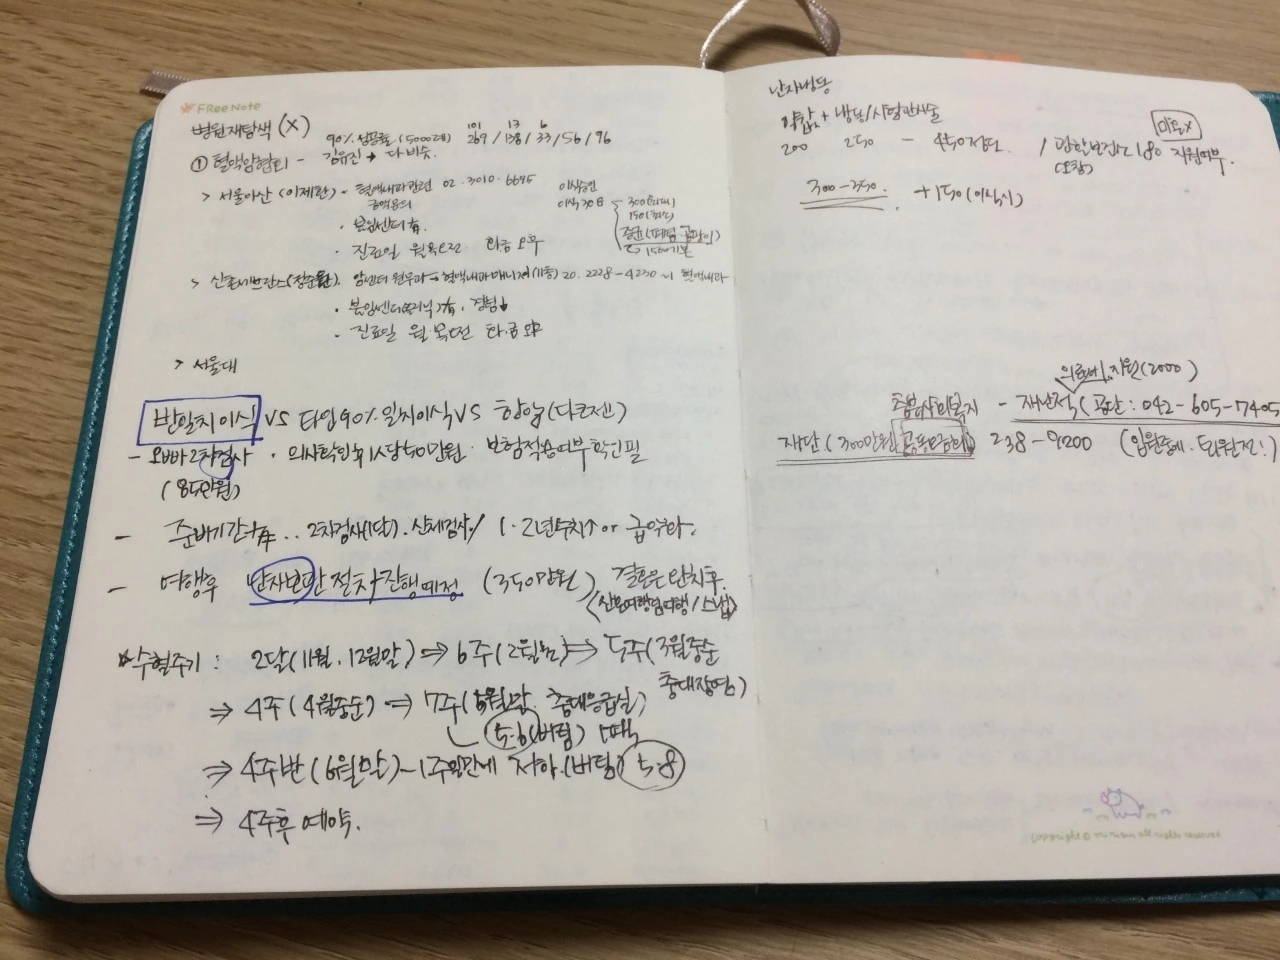 FRee Note
병원재탐색 (X)
101 13 6
90% 생존률 (5000례) 269 / 138 / 33 / 56 / 96
① 혈액암협회 - 김유진 → 다 비슷.
> 서울아산 (이제환) - 혈액내과관련 02.3010.6695
금액문의
이식30日 300
150
· 불임센터 有.
· 진료일 월목오전 화금오후
> 신촌세브란스 암센터 원무과 → 혈액내과 20.2228-4230 혈액내과
· 불임센터 有. 경험↓
· 진료일 월.목오전 화.금오후
> 서울대
반일치이식 VS 타인90%일치이식 VS 항암(다코젠)
- 오빠2차검사 · 의사확인후 1人당50만원. 보험적용여부 확인필
(85만원)
- 준비기간有.. 2차검사(1달). 신체검사 / 1.2년수치↑ or 급악화.
- 여행후 난자보관 절차진행예정 (350만원) 결혼은 완치후.
(신혼여행겸여행 / 스냅)
☆수혈주기 : 2달(11월, 12월말) ⇒ 6주(2월초) ⇒ 5주(3월중순
중대장염)
⇒ 4주(4월중순) ⇒ 7주(5월말. 중대응급실)
5.6(버팀) 5팩
⇒ 4주반(6월말) ~ 1주일만에 저하.(버팀) 5.8
⇒ 4주후 예약.
난자냉동
약값 + 냉동/시험관시술
200 250 - 450정도. / 180 지원여부.
(포함)
미혼X
300-350. + 150(이식시)
의료비지원(2000)
중부사회복지 - 재난적(공단: 042-605-7405
재단(300만원 공동모금회) 238-9200 (입원중에. 퇴원전!)